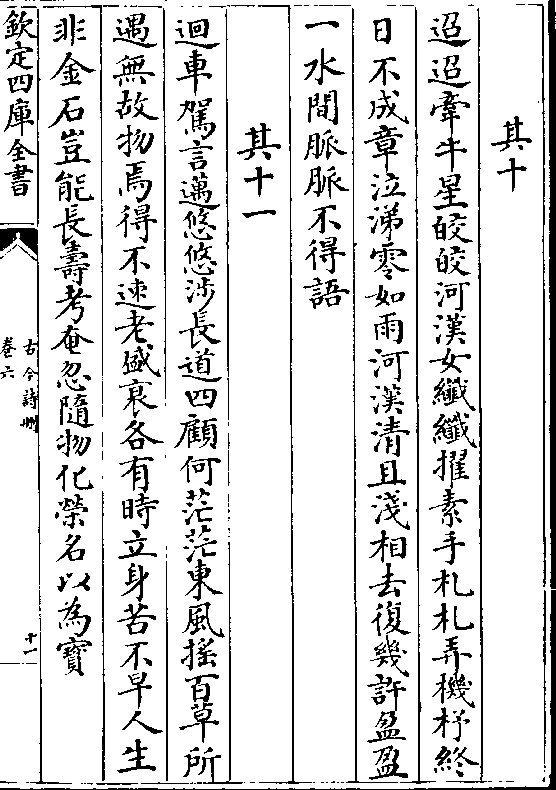 其十
迢迢牽牛星皎皎河漢女纖纖擢素手札札弄機杼終
日不成章泣涕零如雨河漢清且淺相去復幾許盈盈
一水間脈脈不得語
其十一
迴車駕言邁悠悠涉長道四顧何茫茫東風搖百草所
遇無故物焉得不速老盛衰各有時立身苦不早人生
非金石豈能長壽考奄忽隨物化榮名以為寶
欽定四庫全書
古今詩刪
卷六
十一